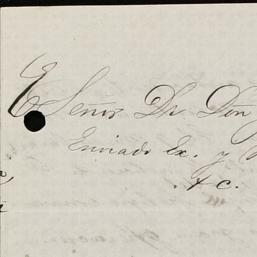 E Señor Dr. Don
Enviado Ex. y
&c.